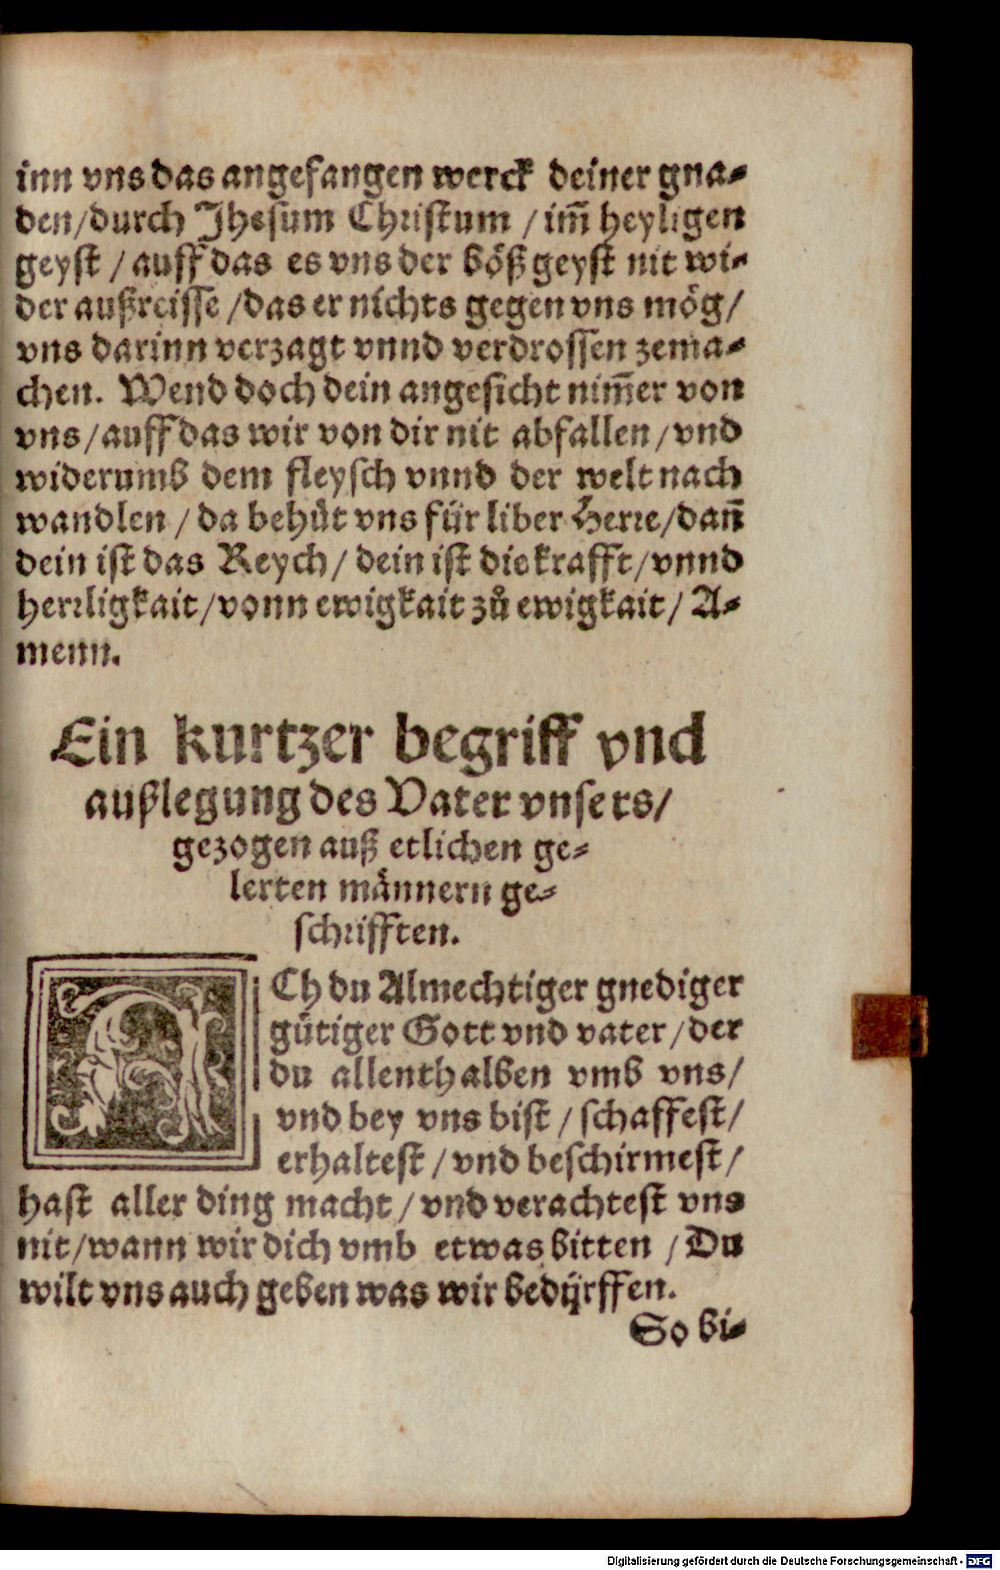 inn vns das angefangen werck deiner gna⸗
den/durch Jhesum Christum / im̄ heyligen
geyst / auff das es vns der böß geyst nit wi⸗
der außreisse /das er nichts gegen vns mög/
vns darinn verzagt vnnd verdrossen zema⸗
chen. Wend doch dein angesicht nim̄er von
vns/auff das wir von dir nit abfallen/vnd
widerumb dem fleysch vnnd der welt nach
wandlen / da behüt vns für liber Herre/dañ
dein ist das Reych/ dein ist die krafft/vnnd
herrligkait/vonn ewigkait zů ewigkait/ A⸗
menn.
Ein kurtzer begriff vnd
außlegung des Vater vnsers/
gezogen auß etlichen ge⸗
lerten männern ge⸗
schrifften.
ACh du Almechtiger gnediger
gütiger Gott vnd vater/der
du allenthalben vmb vns/
vnd bey vns bist / schaffest/
erhaltest / vnd beschirmest/
hast aller ding macht / vnd verachtest vns
nit/wann wir dich vmb etwas bitten / Du
wilt vns auch geben was wir bedÿrffen.
So bi⸗
Digitalisierung gefördert durch die Deutsche Forschungsgemeinschaft - DFG